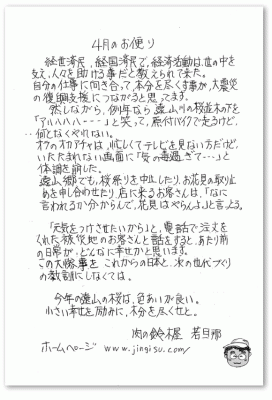 4月のお便り
経世済民、経国済民で、経済活動は世の中を
支え、人々を助ける事だと教えられて来た。
自分の仕事に向き合って本分を尽くす事が、大震災
の復興支援につながると思ってます。
然しながら、例年なら遠山川の桜並木の下を
「アハハハハ---」と笑って、原付バイクで走るけど、
‥何となくやれない。
オラのオカアチャは、忙しくてテレビを見ない方だけど、
いたたまれない画面に「気の毒過ぎて・・・」と
体調を崩した。
遠山郷でも、桜祭りを中止したり、お花見の取り止め
を申し合わせたり。店に来るお客さんは、「なに
言われるか分からんで、花見はやらんよ」と言ってる。
「元気をつけさせたいから」と、電話で注文を
くれた被災地のお客さんと話をすると、あたり前
の日常が、どんなに幸せかと思います。
この大惨事を、これからの日本と、次の世代づくり
の教訓にしなくては。
今年の遠山の桜は、色あいが良い。
小さい幸せを励みに、本分を尽くせと。
肉の鈴木屋 若旦那
ホームページ www.jingisu.com/